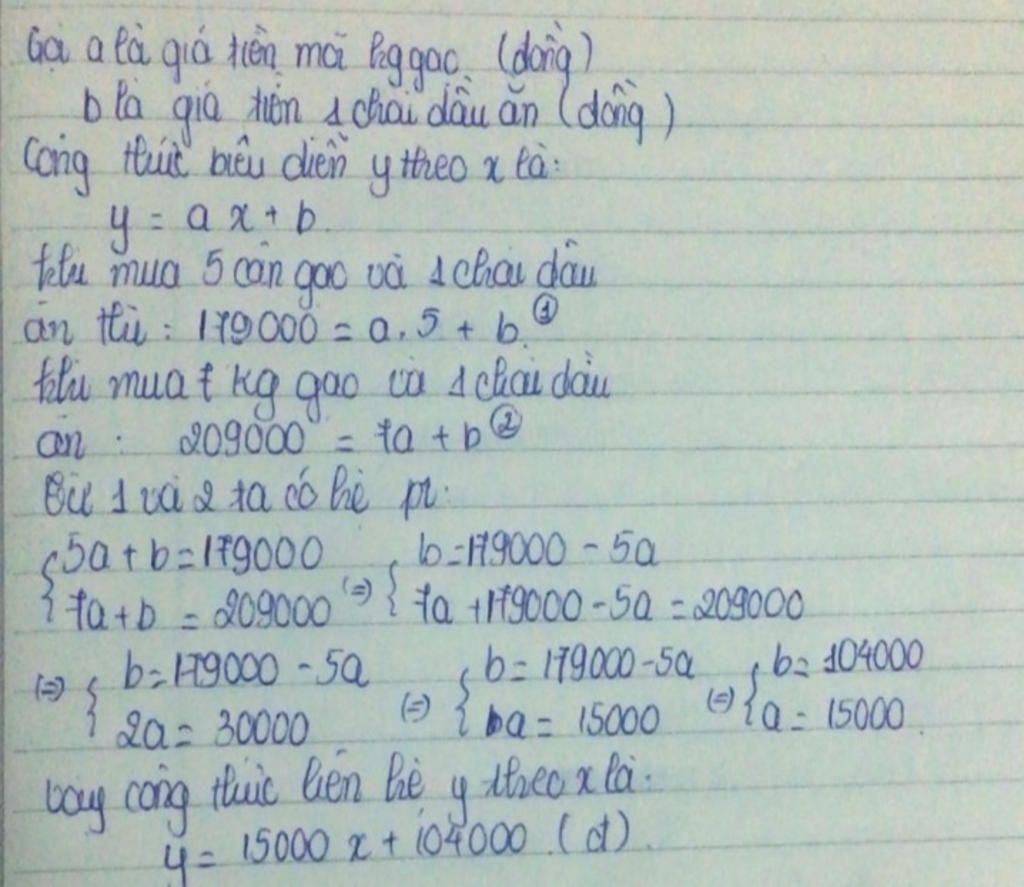 Gọi a là giá tiền mỗi kg gạo (đồng)
b là giá tiền 1 chai dầu ăn (đồng)
Công thức biểu diễn y theo x là:
y = ax + b.
Khi mua 5 cân gạo và 1 chai dầu
ăn thì: 179000 = a.5 + b. ①
Khi mua 7 kg gạo và 1 chai dầu
ăn: 209000 = 7a + b ②
Từ 1 và 2 ta có hệ pt:
{ 5a + b = 179000 (=) { b = 179000 - 5a
7a + b = 209000 7a + 179000 - 5a = 209000
(=) { b = 179000 - 5a (=) { b = 179000 - 5a (=) { b = 104000
2a = 30000 a = 15000 a = 15000.
Vậy công thức liên hệ y theo x là:
y = 15000 x + 104000 (đ).